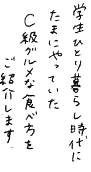 学生ひとり暮らし時代に
たまにやっていた
C級グルメな食べ方を
ご紹介します。